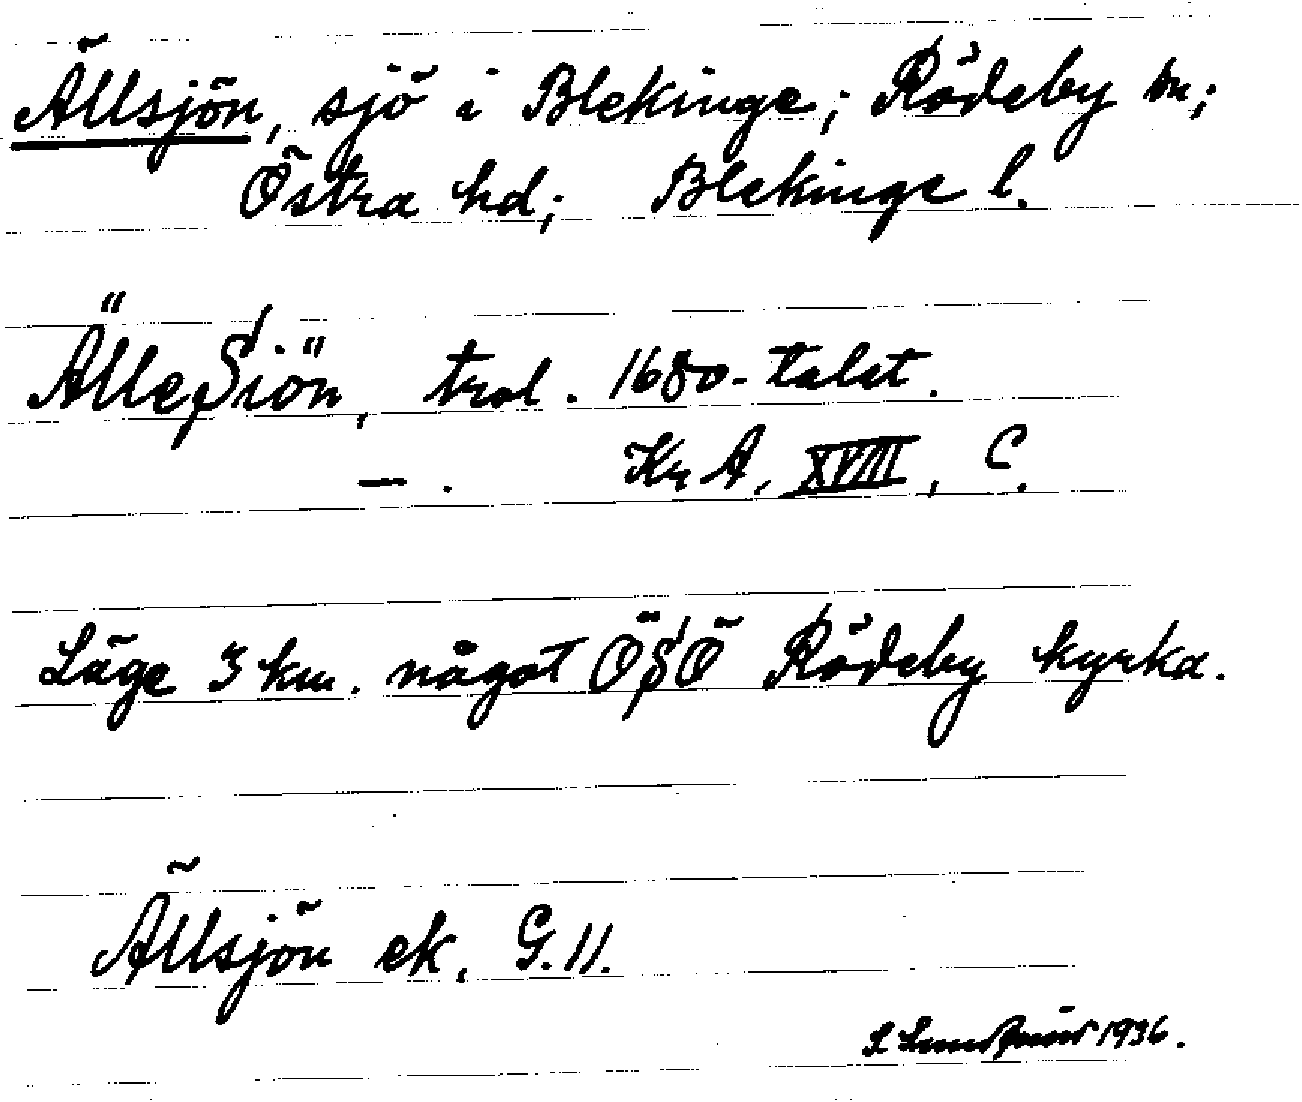 Ällsjön, sjö i Blekinge; Rödeby sn;
Östra hd; Blekinge l.
ÄlleSiön, trol. 1680-talet.
—. KrA, XVIII, C.
Läge 3 km. något ÖSÖ Rödeby kyrka.
Ällsjön ek. G.11.
1936.